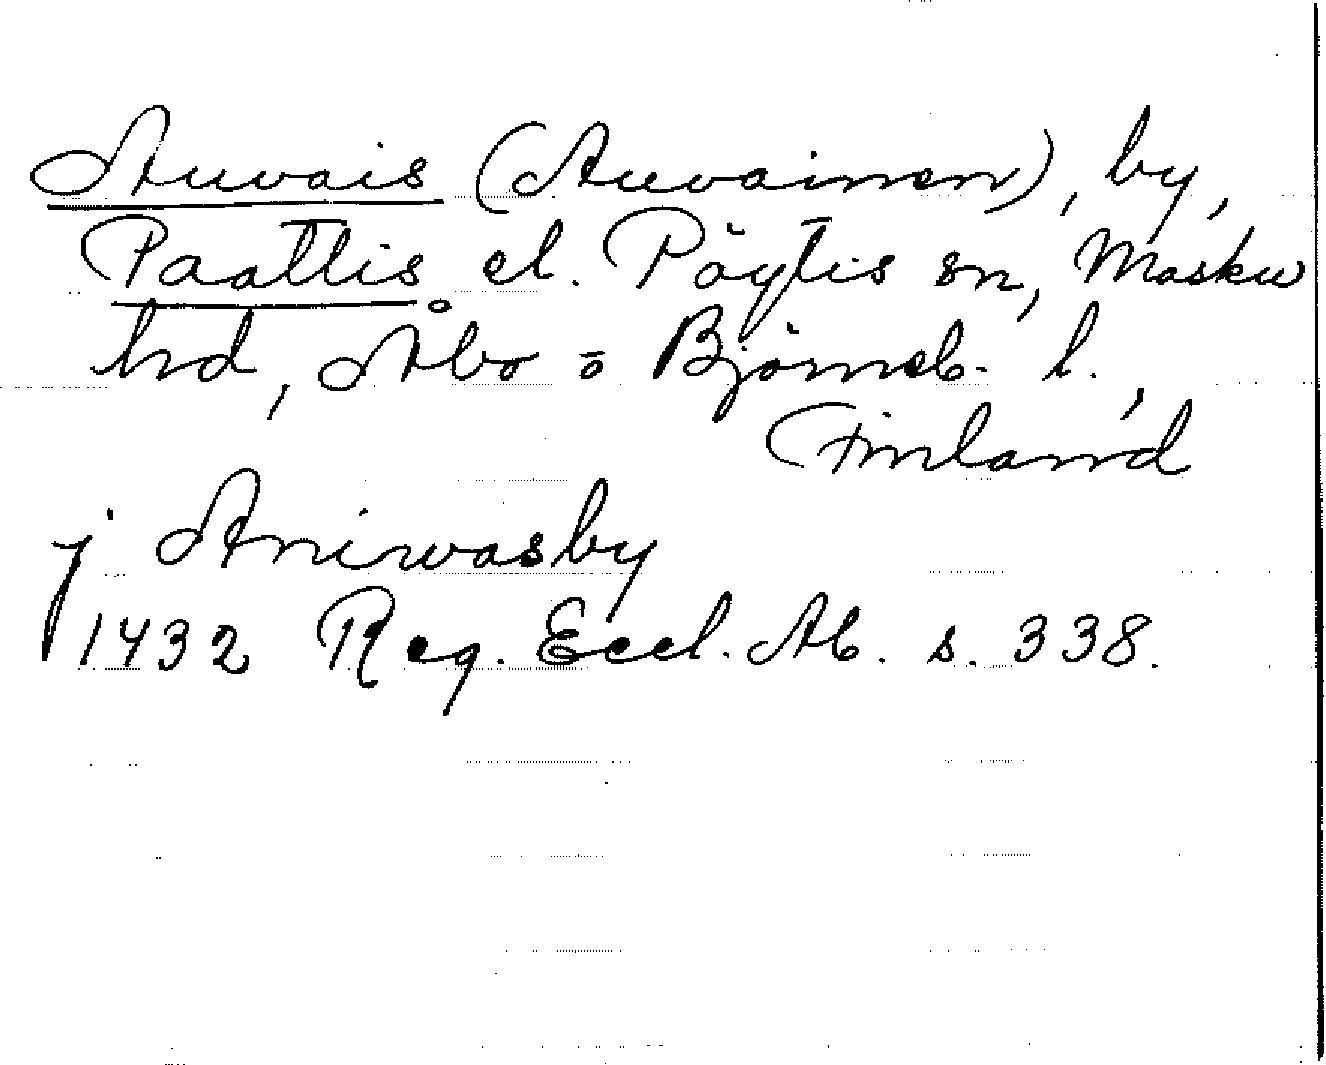 Auvais (Auvainen), by,
Paattis el. Pöytis sn, Masku
hd, Åbo o Björneb. l.,
Finland
j Aniwasby
1432 Reg. Eccl. Ab. s. 338.